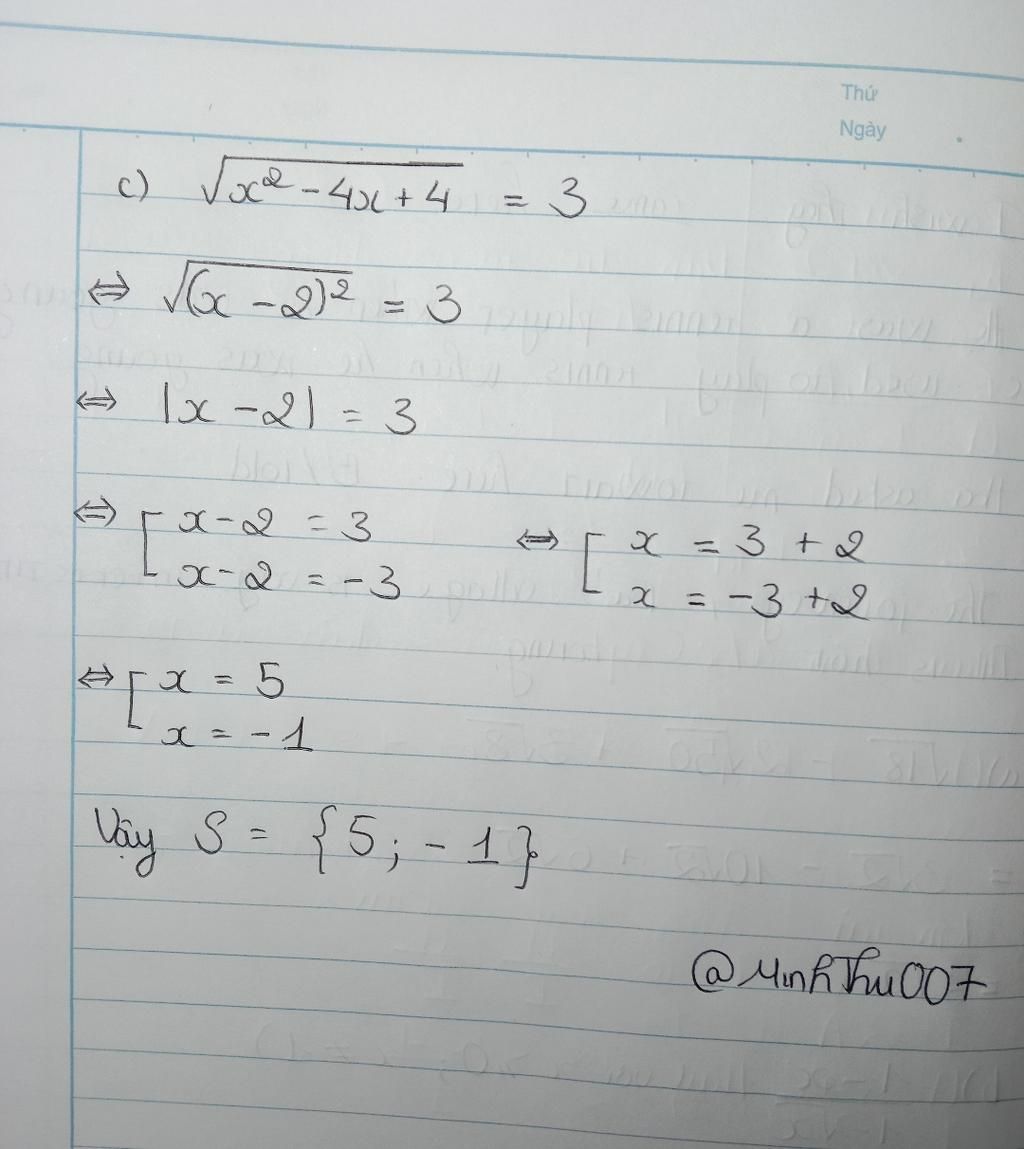 Thứ
Ngày
c) √(x² - 4x + 4) = 3
⇔ √((x - 2)²) = 3
⇔ |x - 2| = 3
⇔ [ x - 2 = 3 ⇔ [ x = 3 + 2
x - 2 = -3 x = -3 + 2
⇔ [ x = 5
x = -1
Vậy S = {5; -1}
@MinhThu007